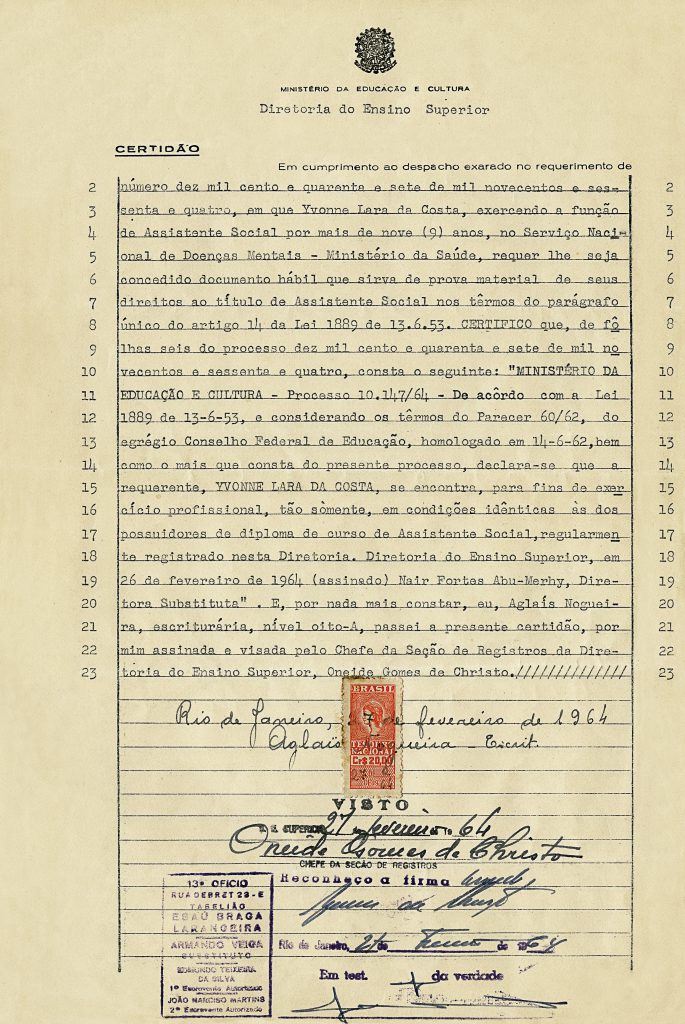 MINISTÉRIO DA EDUCAÇÃO E CULTURA
Diretoria do Ensino Superior
CERTIDÃO
Em cumprimento ao despacho exarado no requerimento de
2 número dez mil cento e quarenta e sete de mil novecentos e ses- 2
3 senta e quatro, em que Yvonne Lara da Costa, exercendo a função 3
4 de Assistente Social por mais de nove (9) anos, no Serviço Naci- 4
5 onal de Doenças Mentais - Ministério da Saúde, requer lhe seja 5
6 concedido documento hábil que sirva de prova material de seus 6
7 direitos ao título de Assistente Social nos têrmos do parágrafo 7
8 único do artigo 14 da Lei 1889 de 13.6.53. CERTIFICO que, de fô 8
9 lhas seis do processo dez mil cento e quarenta e sete de mil no 9
10 vecentos e sessenta e quatro, consta o seguinte: "MINISTÉRIO DA 10
11 EDUCAÇÃO E CULTURA - Processo 10.147/64 - De acôrdo com a Lei 11
12 1889 de 13-6-53, e considerando os têrmos do Parecer 60/62, do 12
13 egrégio Conselho Federal de Educação, homologado em 14-6-62,bem 13
14 como o mais que consta do presente processo, declara-se que a 14
15 requerente, YVONNE LARA DA COSTA, se encontra, para fins de exer 15
16 cício profissional, tão sòmente, em condições idênticas às dos 16
17 possuidores de diploma de curso de Assistente Social,regularmen 17
18 te registrado nesta Diretoria. Diretoria do Ensino Superior, em 18
19 26 de fevereiro de 1964 (assinado) Nair Fortes Abu-Merhy, Dire- 19
20 tora Substituta" . E, por nada mais constar, eu, Aglaís Noguei- 20
21 ra, escriturária, nível oito-A, passei a presente certidão, por 21
22 mim assinada e visada pelo Chefe da Seção de Registros da Dire- 22
23 toria do Ensino Superior, Oneide Gomes de Christo.////////////// 23
BRASIL
Rio de Janeiro, 27 de fevereiro de 1964
Aglaís Nogueira - Escrit.
TESOURO
NACIONAL
Cr$ 20,00
VISTO
SUPERIOR 27 fevereiro 64
Oneide Gomes de Christo
CHEFE DA SECÃO DE REGISTROS
Reconheço a firma
13º OFICIO
RUA DEBRET 23-E
TABELIÃO
ESAÚ BRAGA
LARANGEIRA
ARMANDO VEIGA
SUBSTITUTO
EDMUNDO TEIXEIRA
DA SILVA
1º Escrevente Autorizado
JOÃO NARCISO MARTINS
2º Escrevente Autorizado
Rio de Janeiro, 27 de de 64
Em test. da verdade